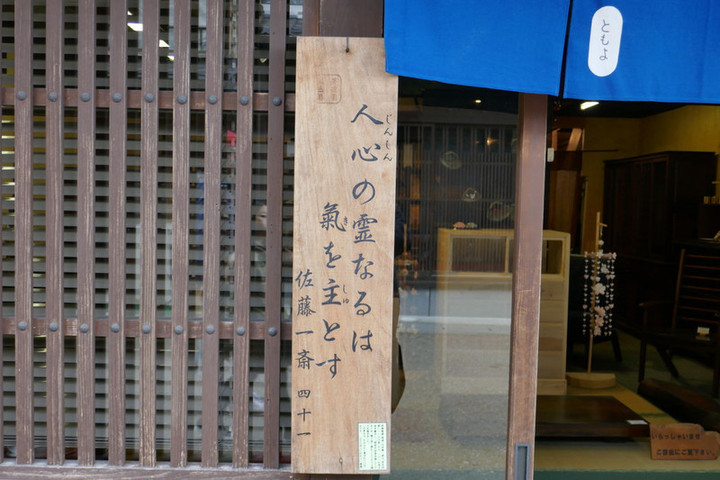 人心の霊なるは
じんしん
氣を主とす
き
しゅ
佐藤一斎 四十一
ともよ
いらっしゃいませ
ご自由にご覧下さい